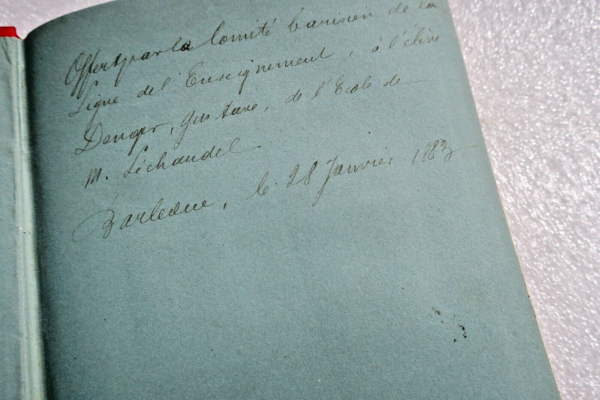 Offert par la Comité barisien de la
Ligue de l'Enseignement, à l'élève
Denger, Gustave, de l'Ecole de
M. Léchaudel.
Barleduc, le 28 Janvier 1883